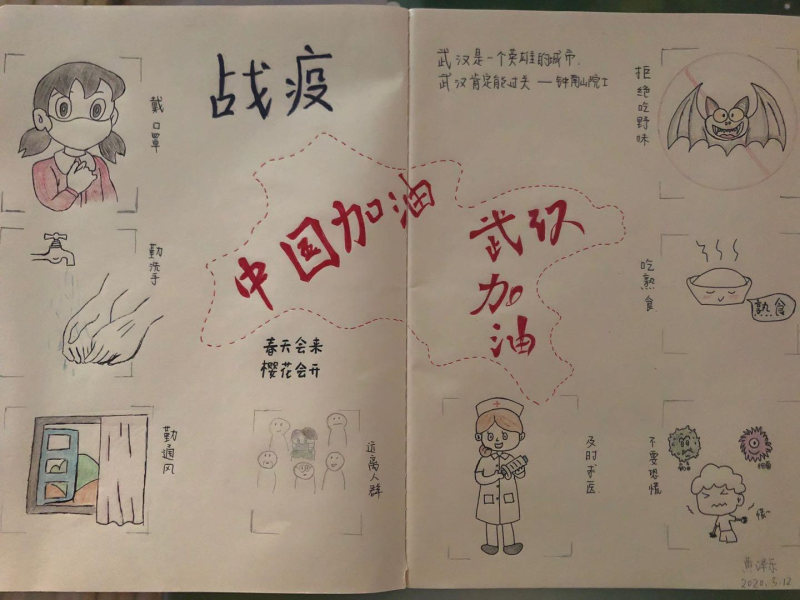 战疫
武汉是一个英雄的城市.
武汉肯定能过关 — 钟南山院士
戴口罩
勤洗手
勤通风
中国加油
武汉
加
油
春天会来
樱花会开
远离人群
拒绝吃野味
吃熟食
熟食
及时就医
不要恐慌